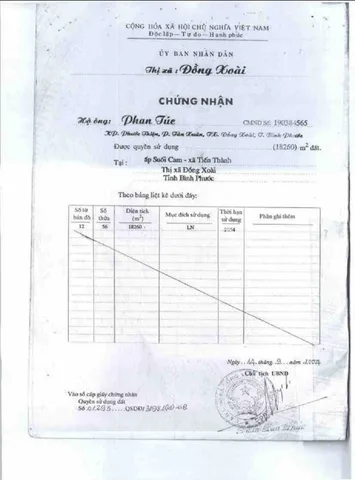 CỘNG HÒA XÃ HỘI CHỦ NGHĨA VIỆT NAM
Độc lập - Tự do - Hạnh phúc
ỦY BAN NHÂN DÂN
Thị xã : Đồng Xoài
CHỨNG NHẬN
Hộ ông: Phan Túc CMND số:
KP. Phước Thiện, P. Tân Xuân, TX. Đồng Xoài, T. Bình Phước
Được quyền sử dụng (18260) m² đất.
Tại : ấp Suối Cam - xã Tiến Thành
Thị xã Đồng Xoài
Tỉnh Bình Phước
Theo bảng liệt kê dưới đây:
Số tờ bản đồ Số thửa Diện tích (m²) Mục đích sử dụng Thời hạn sử dụng Phần ghi thêm
12 56 18260 LN
Ngày tháng 9 năm
Chủ tịch UBND
Vào sổ cấp giấy chứng nhận
Quyền sử dụng đất
Số QSDĐ/